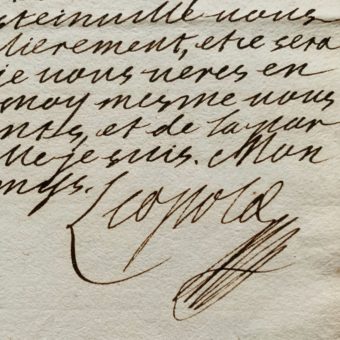 steinville nous
lierement, et ce sera
je vous veres en
moy mesme vous
nts, et de la par
lle je suis. Mon
Leopold